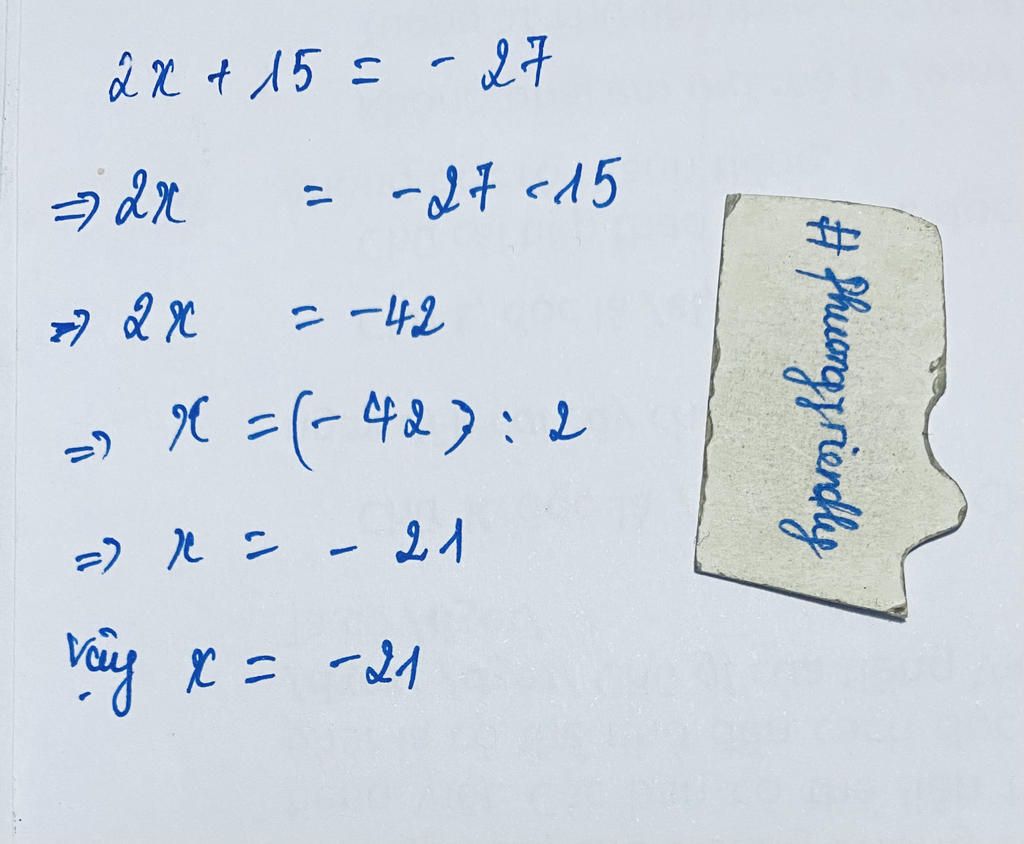 2x + 15 = - 27
=> 2x = -27 - 15
=> 2x = -42
=> x = (-42) : 2
=> x = - 21
Vậy x = -21
# phuongfriendly